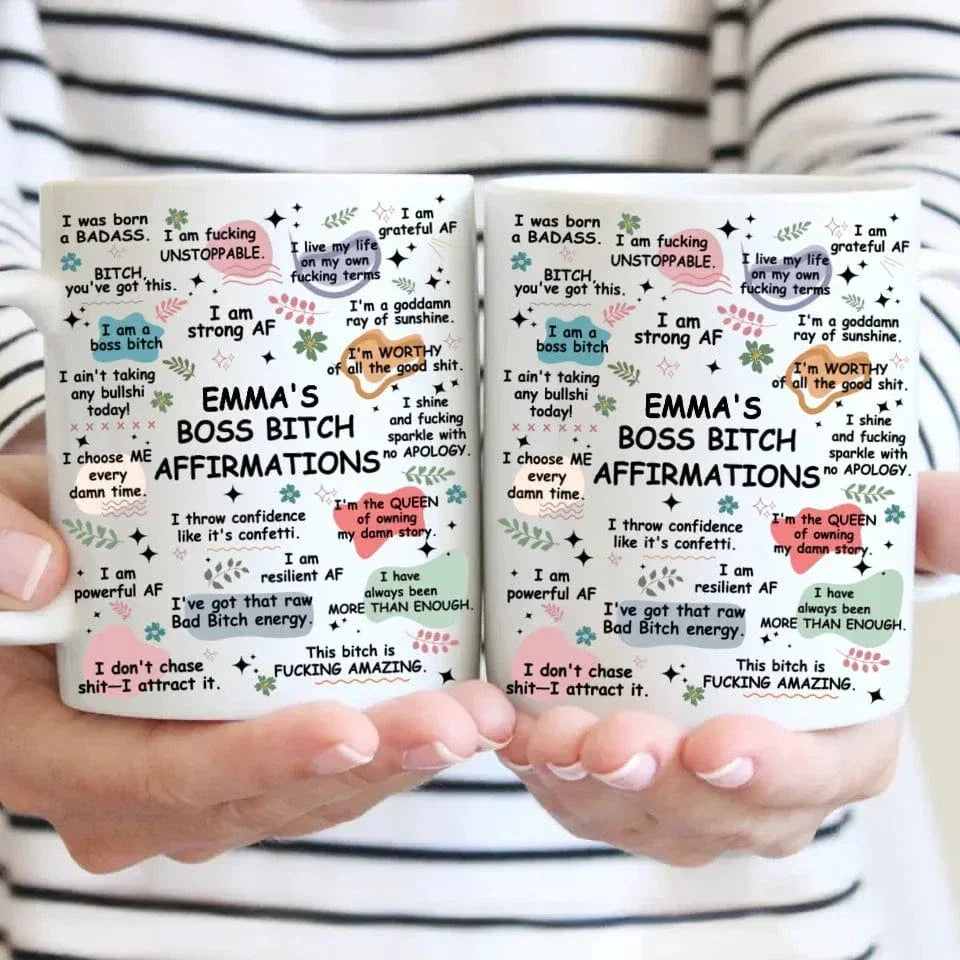 I was born
a BADASS.
I am fucking
UNSTOPPABLE.
I live my life
on my own
fucking terms
I am
grateful AF
BITCH,
you've got this.
I am
strong AF
I'm a goddamn
ray of sunshine.
I am a
boss bitch
I'm WORTHY
of all the good shit.
I ain't taking
any bullshi
today!
EMMA'S
BOSS BITCH
AFFIRMATIONS
I shine
and fucking
sparkle with
no APOLOGY.
I choose ME
every
damn time.
I throw confidence
like it's confetti.
I'm the QUEEN
of owning
my damn story.
I am
powerful AF
I am
resilient AF
I have
always been
MORE THAN ENOUGH.
I've got that raw
Bad Bitch energy.
I don't chase
shit—I attract it.
This bitch is
FUCKING AMAZING.
I was born
a BADASS.
I am fucking
UNSTOPPABLE.
I live my life
on my own
fucking terms
I am
grateful AF
BITCH,
you've got this.
I am
strong AF
I'm a goddamn
ray of sunshine.
I am a
boss bitch
I'm WORTHY
of all the good shit.
I ain't taking
any bullshi
today!
EMMA'S
BOSS BITCH
AFFIRMATIONS
I shine
and fucking
sparkle with
no APOLOGY.
I choose ME
every
damn time.
I throw confidence
like it's confetti.
I'm the QUEEN
of owning
my damn story.
I am
powerful AF
I am
resilient AF
I have
always been
MORE THAN ENOUGH.
I've got that raw
Bad Bitch energy.
I don't chase
shit—I attract it.
This bitch is
FUCKING AMAZING.